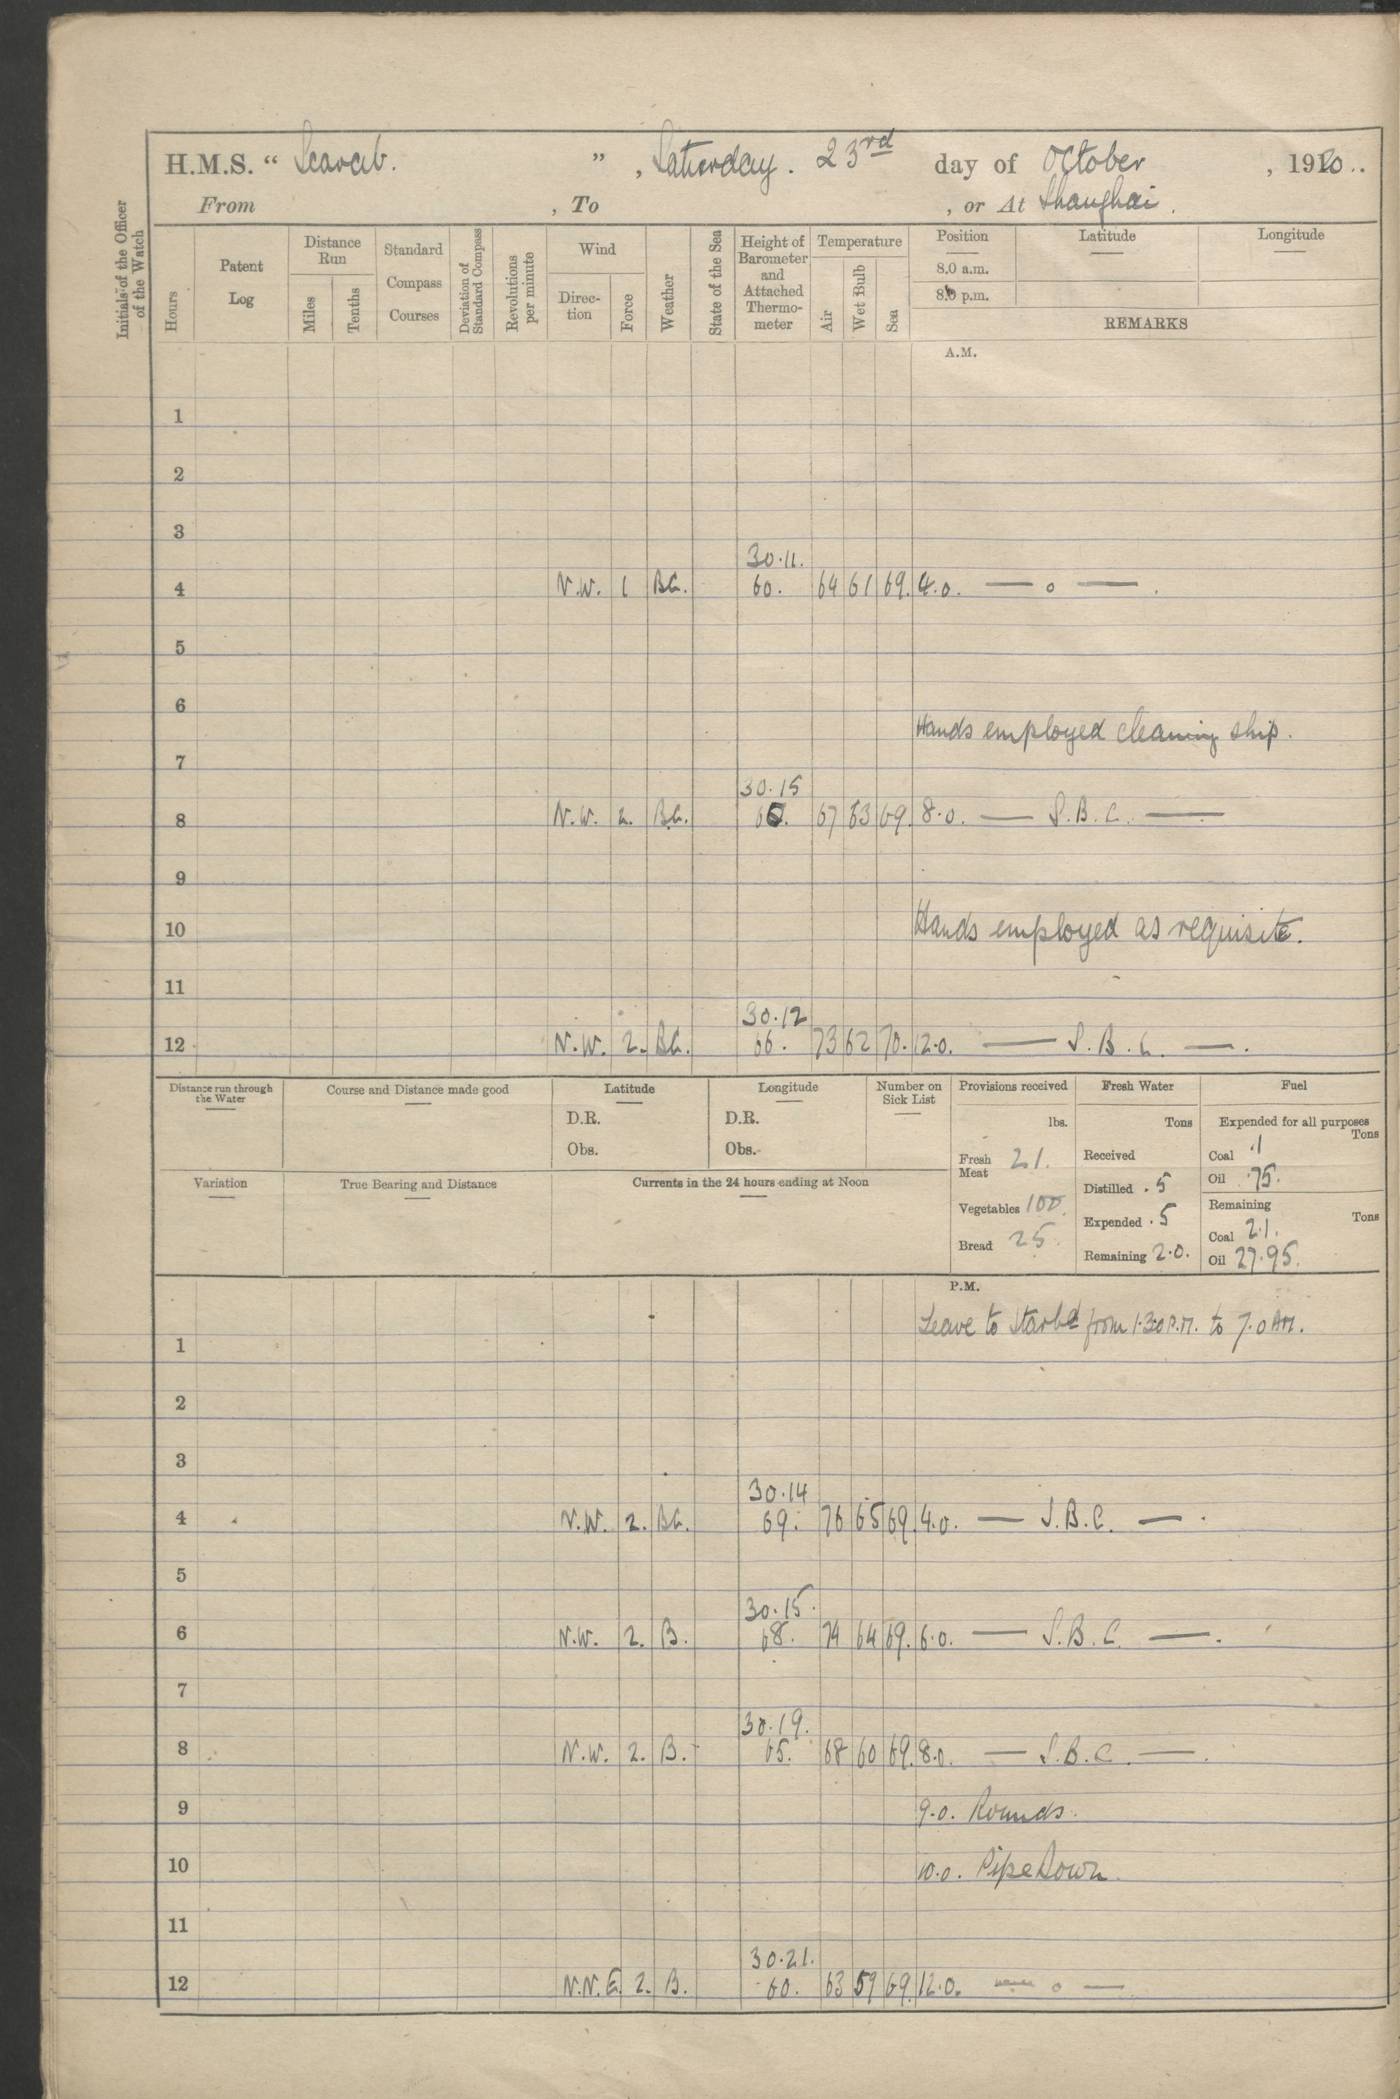 H.M.S. “ Scarab. ” , Saturday. 23rd day of October , 1920..
From , To , or At Shanghai.
Initials of the Officer of the Watch
Hours
Patent Log
Distance Run
Miles
Tenths
Standard Compass Courses
Deviation of Standard Compass
Revolutions per minute
Wind
Direc-tion
Force
Weather
State of the Sea
Height of Barometer and Attached Thermo-meter
Temperature
Air
Wet Bulb
Sea
Position Latitude Longitude
8.0 a.m.
8.0 p.m.
REMARKS
A.M.
1
2
3
30.11.
4 N.W. 1 BC. 60. 64 61 69. 4.0. — o — .
5
6
Hands employed cleaning ship.
7
30.15
8 N.W. 2. BC. 66. 67 63 69. 8.0. — S.B.C. —
9
10 Hands employed as requisite.
11
30.12
12 N.W. 2. BC. 66. 73 62 70. 12.0. — S.B.C. — .
Distance run through the Water
Course and Distance made good
Latitude
D.R.
Obs.
Longitude
D.R.
Obs.
Number on Sick List
Variation
True Bearing and Distance
Currents in the 24 hours ending at Noon
Provisions received
lbs.
Fresh Meat 21.
Vegetables 100.
Bread 25.
Fresh Water
Tons
Received
Distilled .5
Expended .5
Remaining 2.0.
Fuel
Expended for all purposes
Tons
Coal .1
Oil .75.
Remaining
Tons
Coal 2.1.
Oil 27.95.
P.M.
Leave to Starbd from 1.30 P.M. to 7.0 AM.
1
2
3
30.14
4 N.W. 2. BC. 69. 76 65 69. 4.0. — S.B.C. — .
5
30.15.
6 N.W. 2. B. 68. 74 64 69. 6.0. — S.B.C. — .
7
30.19.
8 N.W. 2. B. 65. 68 60 69. 8.0. — S.B.C. — .
9 9.0. Rounds.
10 10.0. Pipe Down.
11
30.21.
12 N.N.E. 2. B. 60. 63 59 69. 12.0. — o —